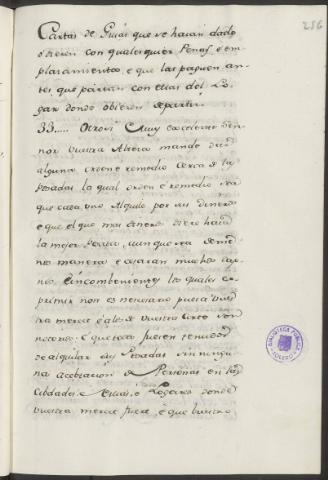 256
Cartas de Guias que se hayan dado
o dieren con qualesquier Penas, e em
plazamientos, e que las paguen an-
tes que partan con ellas del Lo-
gar donde obieren de partir.
33..... Otrosi Muy excelente Sen-
nor vuestra Alteza mande dar
alguna orden e remedio cerca de las
Posadas la qual orden e remedio sea
que cada uno alquile por sus dineros
e que el que mas dinero diere haya
la mejor Posada, aunque sea de mde
nos manera e cesaran muchos da-
nnos, e incombenientes los quales ex-
primir non es necesario pues a vues
tra merced e a los de vuestro Consejo son
notorios: e que todos fuesen tenudos
de alquilar sus Posadas sin ningu-
na aceptacion de Personas en las
Cibdades e Villas, e Logares donde
vuestra merced fuere, e que vuestro
BIBLIOTECA PUBLICA
TOLEDO